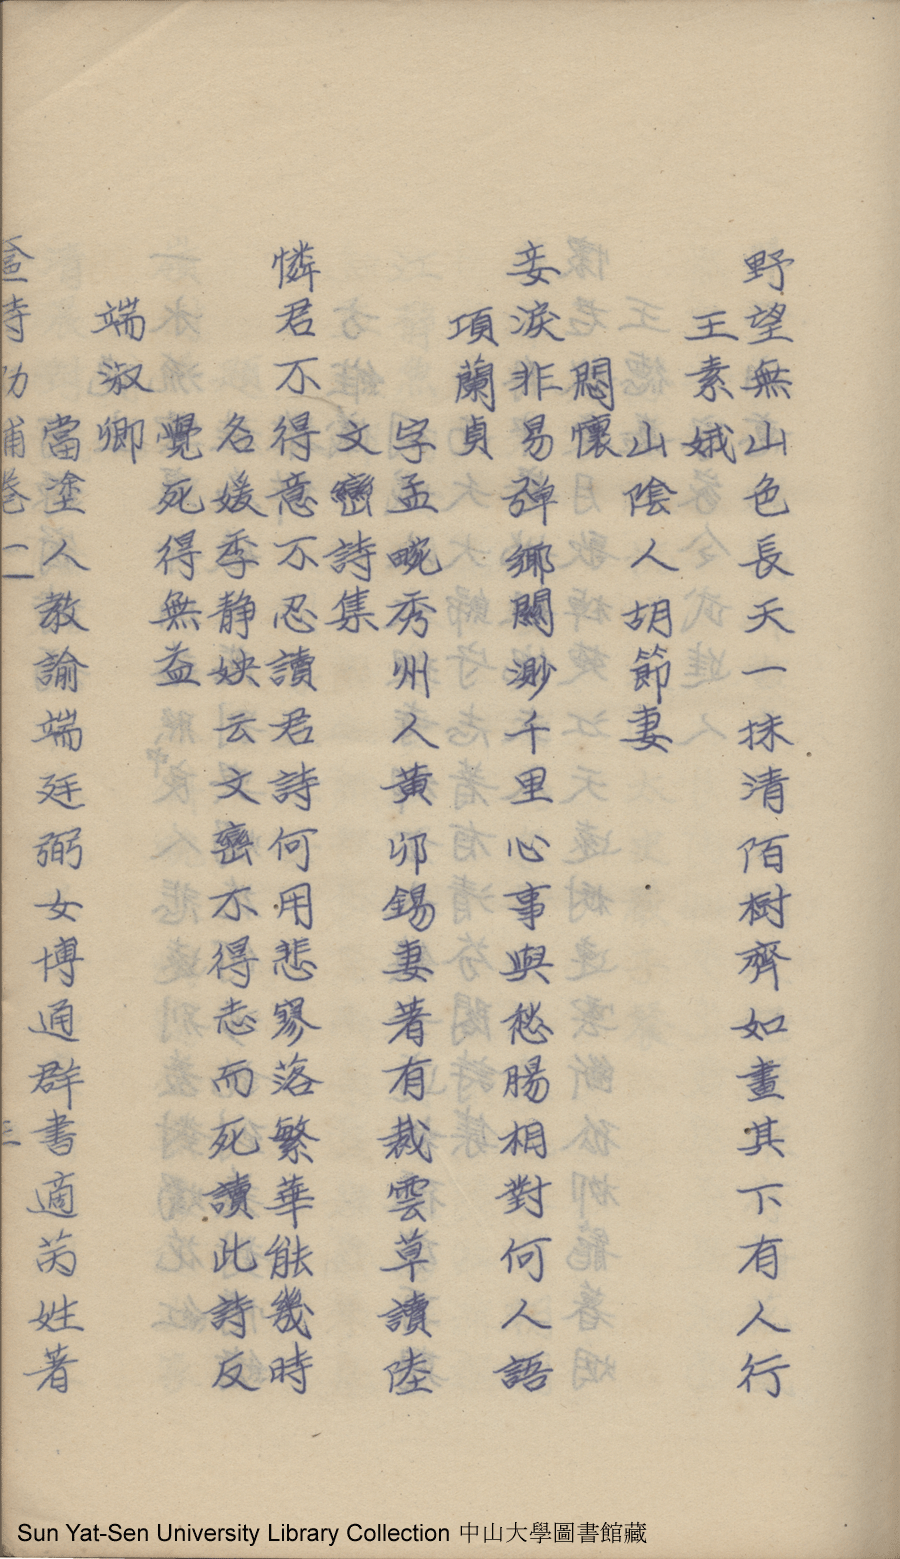 野望無山色長天一抹清陌樹齊如畫其下有人行
王素娥
山陰人胡節妻
悶懷
妾淚非易彈鄉關渺千里心事與愁腸相對何人語
項蘭貞
字孟畹秀州人黃卯錫妻著有裁雲草讀陸
文巒詩集
憐君不得意不忍讀君詩何用悲寥落繁華能幾時
名媛季静姎云文巒不得志而死讀此詩反
覺死得無益
端淑卿
當塗人教諭端廷弼女博通群書適芮姓著
奩詩防補卷二
三
Sun Yat-Sen University Library Collection 中山大學圖書館藏